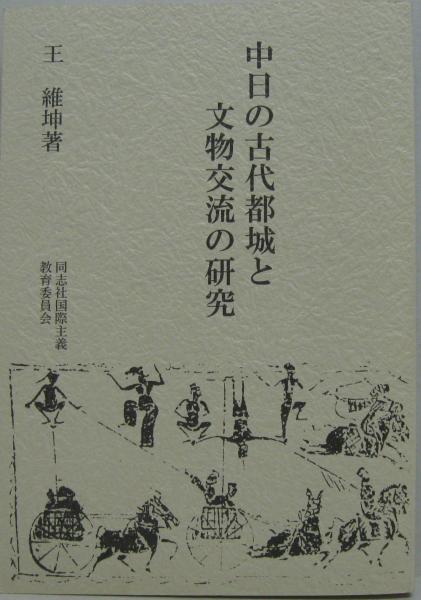 中日の古代都城と
文物交流の研究
王 維坤著
同志社国際主義
教育委員会